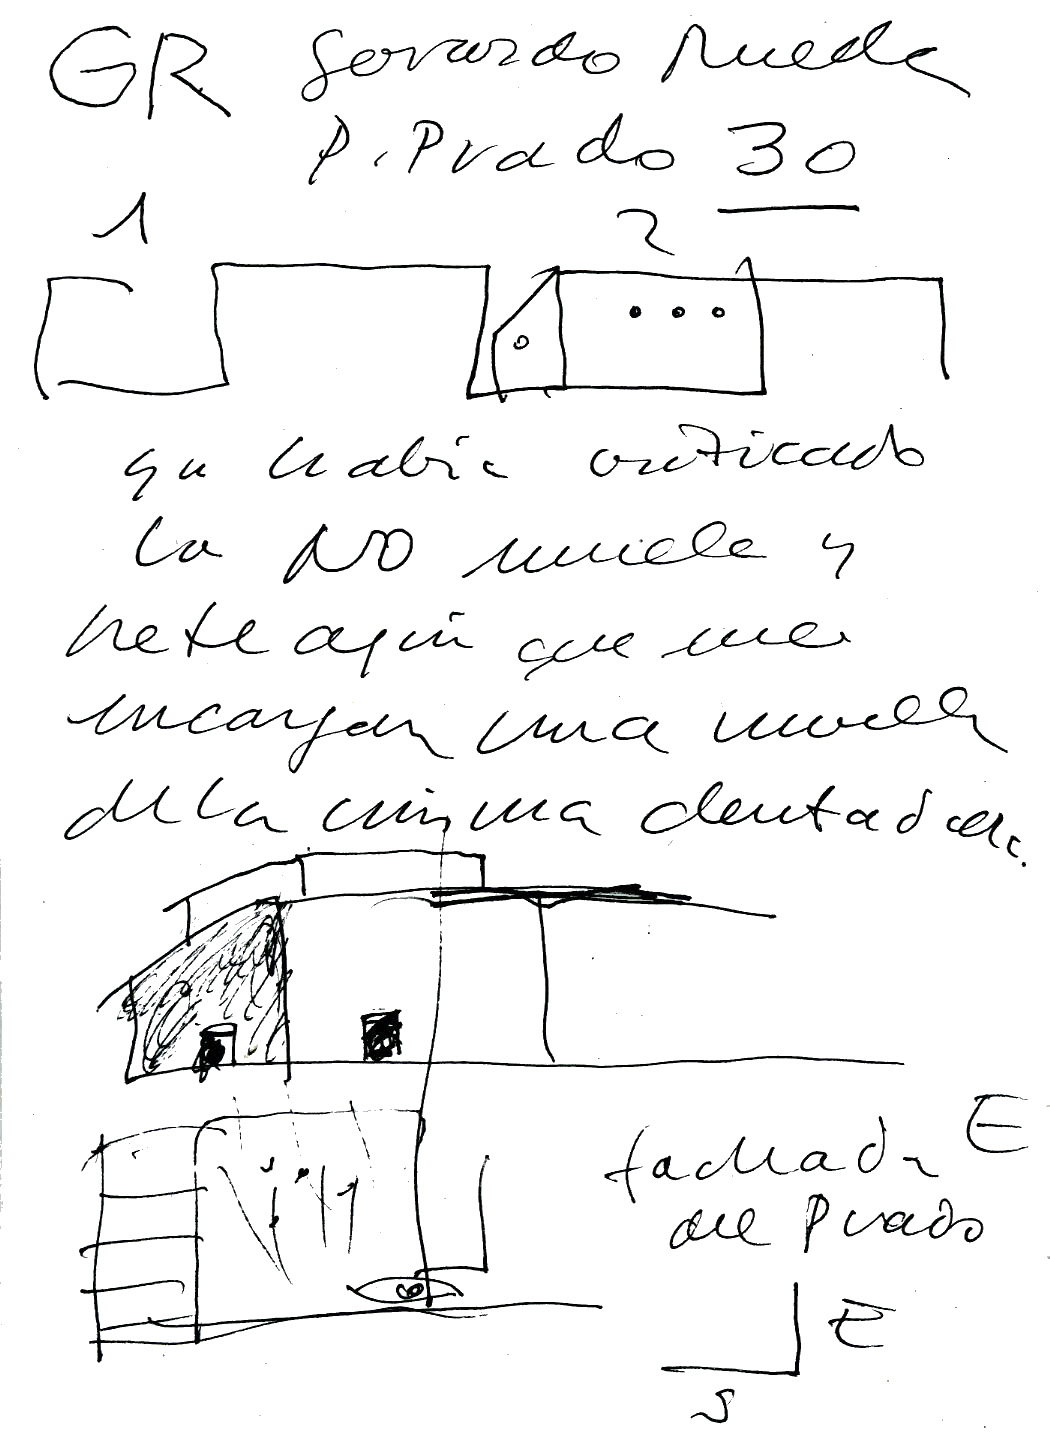 GR Gerardo Rueda
P. Prado 30
1 2
qu había criticado
la NO muela y
hete aquí que me
encargan una muela
de la misma dentadura.
fachada E
del Prado
E
S